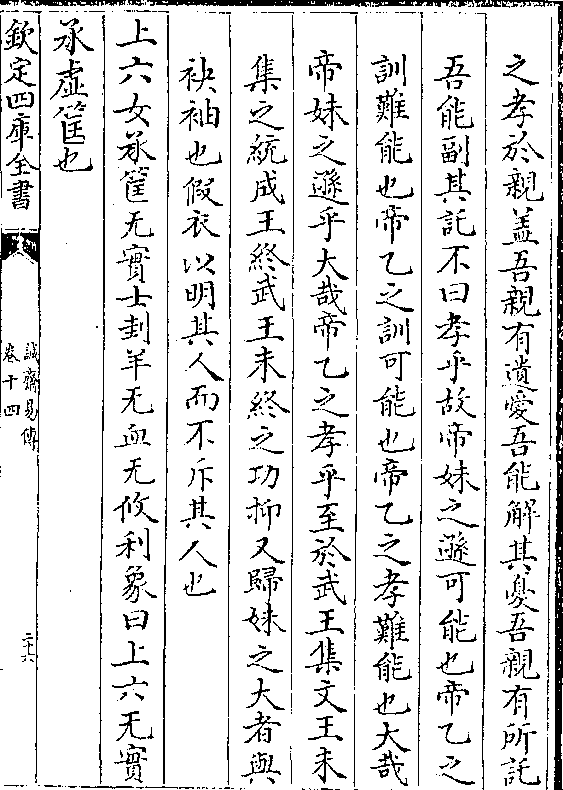 之孝於親盖吾親有遺愛吾能解其憂吾親有所託
吾能副其託不曰孝乎故帝妹之遜可能也帝乙之
訓難能也帝乙之訓可能也帝乙之孝難能也大哉
帝妹之遜乎大哉帝乙之孝乎至於武王集文王未
集之統成王終武王未終之功抑又歸妹之大者與
袂袖也假衣以明其人而不斥其人也
上六女承筐无實士刲羊无血无攸利象曰上六无實
承虚筐也
欽定四庫全書
誠齋易傳
卷十四
二十六